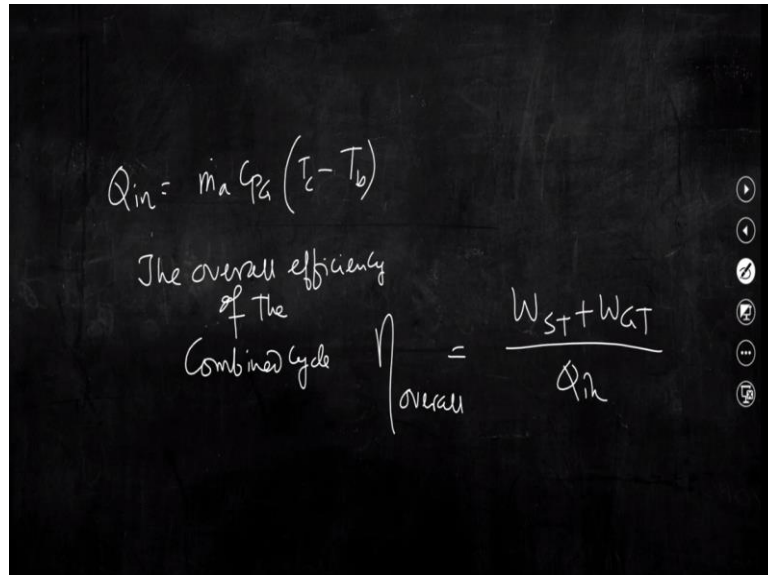 Qin = ṁa CPa (Tc - Tb)
The overall efficiency
of the
Combined Cycle
ηoverall = WST + WGT / Qin